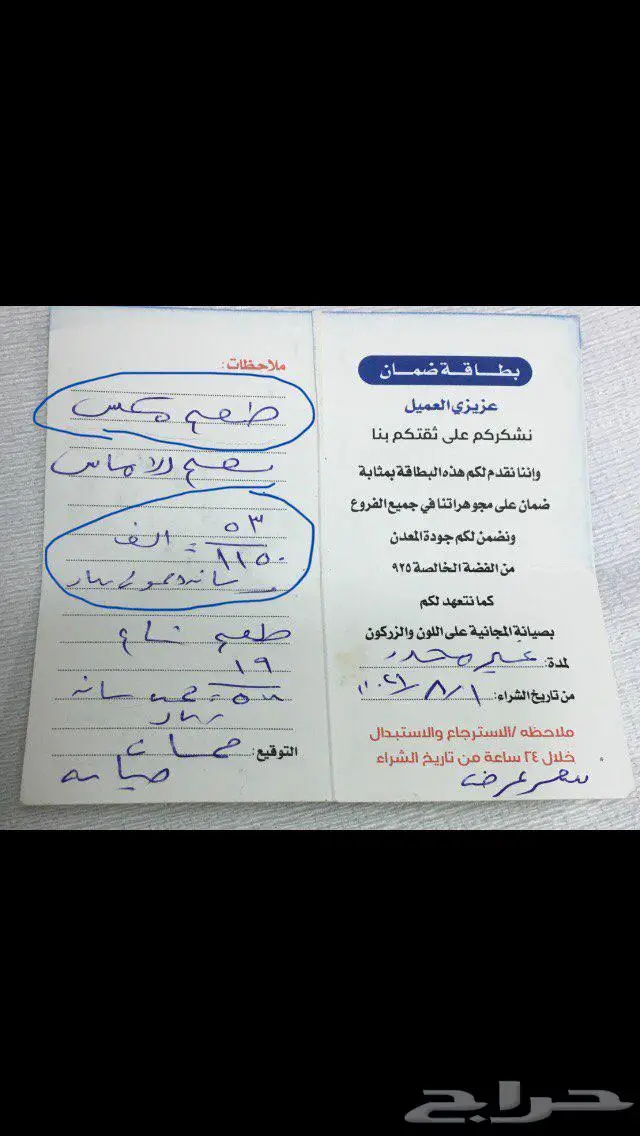 بطاقة ضمان
عزيزي العميل
نشكركم على ثقتكم بنا
واننا نقدم لكم هذه البطاقة بمثابة
ضمان على مجوهراتنا في جميع الفروع
ونضمن لكم جودة المعدن
من الفضة الخالصة ٩٢٥
كما نتعهد لكم
بصيانة المجانية على اللون والزركون
لمدة: غير محدد
من تاريخ الشراء: ٨/١
ملاحظه /الاسترجاع والاستبدال
خلال ٢٤ ساعة من تاريخ الشراء
ملاحظات:
طقم
الالماس
٥٣
١١٥٠ = الف
طقم
١٩
التوقيع:
حراج